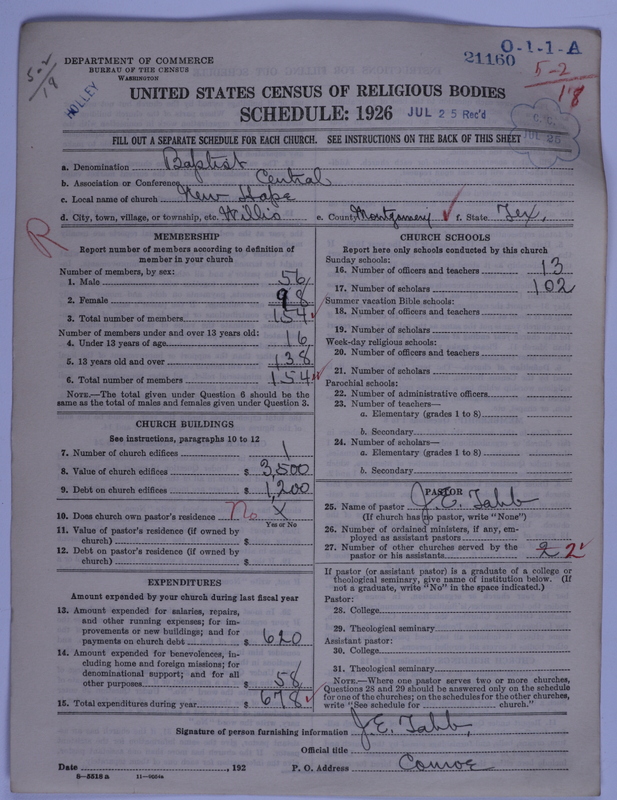 O-1-1-A
21160
5-2
18
5-2
18
HOLLEY
DEPARTMENT OF COMMERCE
BUREAU OF THE CENSUS
WASHINGTON
UNITED STATES CENSUS OF RELIGIOUS BODIES
SCHEDULE: 1926 JUL 25 Rec'd
C. C.
JUL 26
FILL OUT A SEPARATE SCHEDULE FOR EACH CHURCH. SEE INSTRUCTIONS ON THE BACK OF THIS SHEET
a. Denomination Baptist
b. Association or Conference Central
c. Local name of church New Hope
d. City, town, village, or township, etc. Willis e. County Montgomery f. State Tex.
R
MEMBERSHIP
Report number of members according to definition of
member in your church
Number of members, by sex:
1. Male 56
2. Female 98
3. Total number of members 154
Number of members under and over 13 years old:
4. Under 13 years of age 16
5. 13 years old and over 138
6. Total number of members 154
NOTE.—The total given under Question 6 should be the
same as the total of males and females given under Question 3.
CHURCH BUILDINGS
See instructions, paragraphs 10 to 12
7. Number of church edifices 1
8. Value of church edifices $ 3,500
9. Debt on church edifices $ 1,200
10. Does church own pastor's residence No X
Yes or No
11. Value of pastor's residence (if owned by
church) $
12. Debt on pastor's residence (if owned by
church) $
EXPENDITURES
Amount expended by your church during last fiscal year
13. Amount expended for salaries, repairs,
and other running expenses; for im-
provements or new buildings; and for
payments on church debt $ 620
14. Amount expended for benevolences, in-
cluding home and foreign missions; for
denominational support; and for all
other purposes $ 58
15. Total expenditures during year $ 678
CHURCH SCHOOLS
Report here only schools conducted by this church
Sunday schools:
16. Number of officers and teachers 13
17. Number of scholars 102
Summer vacation Bible schools:
18. Number of officers and teachers
19. Number of scholars
Week-day religious schools:
20. Number of officers and teachers
21. Number of scholars
Parochial schools:
22. Number of administrative officers
23. Number of teachers—
a. Elementary (grades 1 to 8)
b. Secondary
24. Number of scholars—
a. Elementary (grades 1 to 8)
b. Secondary
PASTOR
25. Name of pastor J. E. Tabb
(If church has no pastor, write "None")
26. Number of ordained ministers, if any, em-
ployed as assistant pastors
27. Number of other churches served by the
pastor or his assistants 2 2
If pastor (or assistant pastor) is a graduate of a college or
theological seminary, give name of institution below. (If
not a graduate, write "No" in the space indicated.)
Pastor:
28. College
29. Theological seminary
Assistant pastor:
30. College
31. Theological seminary
NOTE.—Where one pastor serves two or more churches,
Questions 28 and 29 should be answered only on the schedule
for one of the churches; on the schedules for the other churches,
write "See schedule for church."
Signature of person furnishing information J. E. Tabb,
Official title
Date , 192 P. O. Address Conroe
8-5518 a 11-9054a